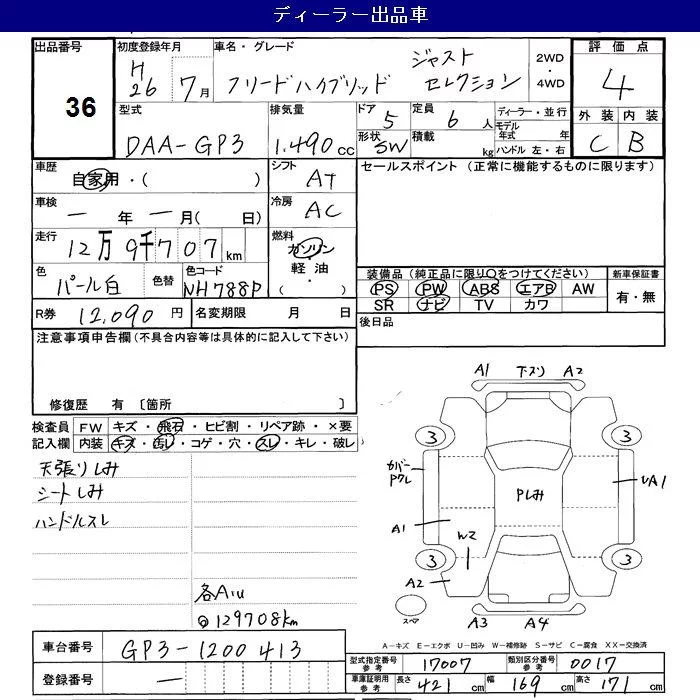 ディーラー出品車
出品番号 36
初度登録年月 H26年 7月
車名・グレード フリードハイブリッド ジャスト セレクション
2WD・4WD
評価点 4
外装 C 内装 B
型式 DAA-GP3
排気量 1.490 cc
ドア 5
形状 SW
定員 6人
積載 kg
ディーラー・並行
モデル年式 年
ハンドル 左・右
車歴 自家用・( )
シフト AT
セールスポイント (正常に機能するものに限ります)
車検 ー年ー月( 日)
冷房 AC
走行 12万9千707km
燃料 ガソリン・軽油・( )
色 パール白
色替
色コード NH788P
装備品(純正品に限り○をつけてください)
新車保証書
PS PW ABS エアB AW
有・無
SR ナビ TV カワ
R券 12,090円
名変期限 月 日
後日品
注意事項申告欄(不具合内容等は具体的に記入して下さい)
修復歴 有 〔箇所 〕
検査員記入欄
FW キズ・飛石・ヒビ割・リペア跡・×要
内装 キズ・汚レ・コゲ・穴・スレ・キレ・破レ
天張りしみ
シートしみ
ハンドルスレ
各A1U
◎129708km
A1 下ズリ A2
3 3
カバーPクレ
Pしみ
UA1
A1
W2
3 3
A2
スペア
A3 A4
A-キズ E-エクボ U-凹み W-補修跡 S-サビ C-腐食 XX-交換済
車台番号 GP3-1200413
登録番号 ー
型式指定番号参考 17007
類別区分番号参考 0017
車庫証明用参考 長さ 421cm 幅 169cm 高さ 171cm